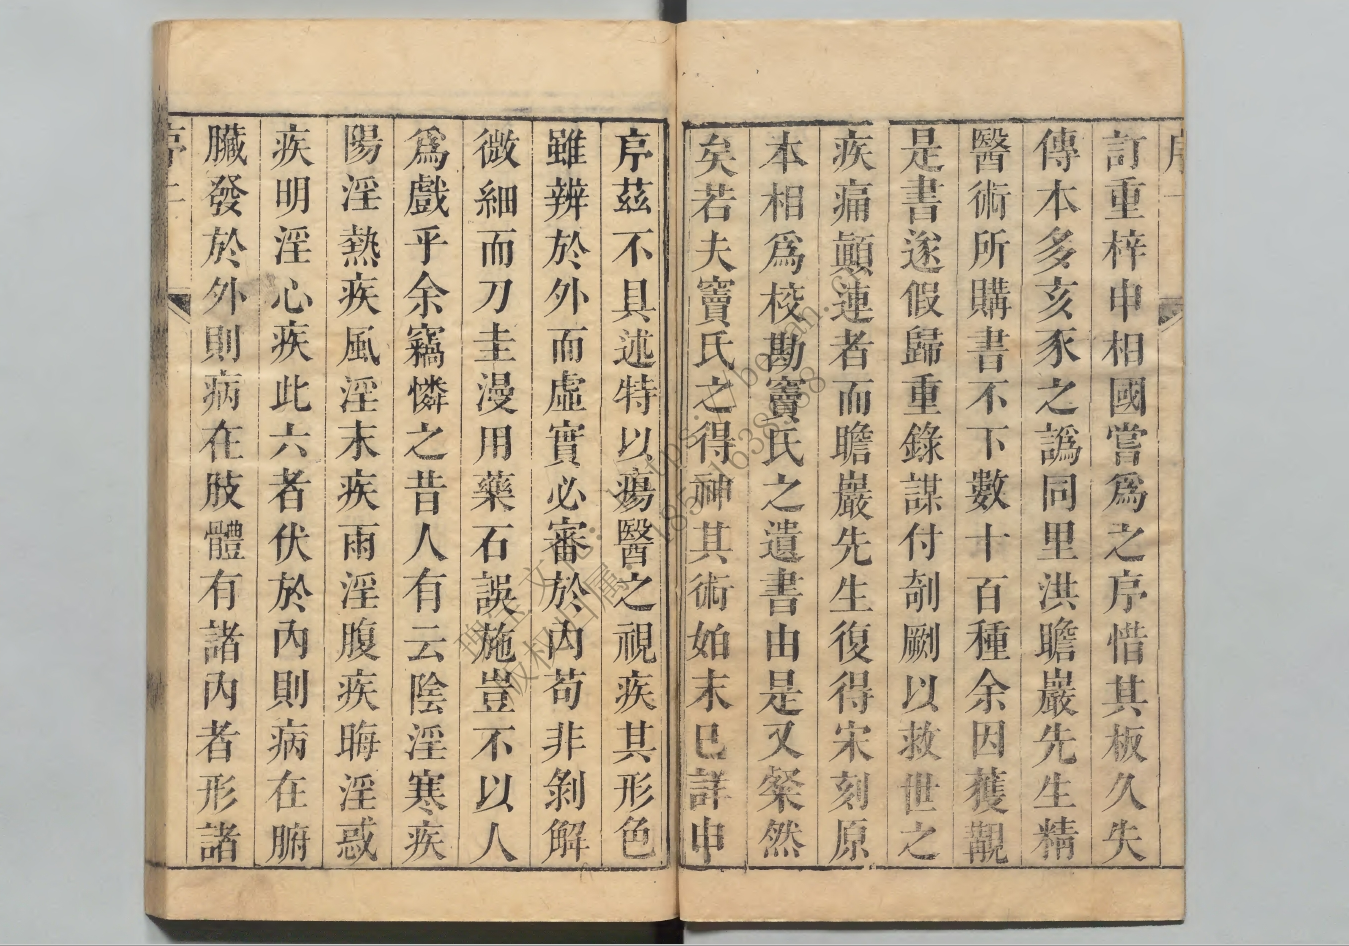 訂重梓申相國嘗爲之序惜其板久失
傳本多亥豕之譌同里洪瞻巖先生精
醫術所購書不下數十百種余因獲觀
是書遂假歸重錄謀付剞劂以救世之
疾痛顚連者而瞻巖先生復得宋刻原
本相爲校勘竇氏之遺書由是又粲然
矣若夫竇氏之得神其術始末已詳申
序茲不具述特以瘍醫之視疾其形色
雖辨於外而虛實必審於內苟非剝解
微細而刀圭漫用藥石誤施豈不以人
爲戲乎余竊憐之昔人有云陰淫寒疾
陽淫熱疾風淫末疾雨淫腹疾晦淫惑
疾明淫心疾此六者伏於內則病在腑
臟發於外則病在肢體有諸內者形諸